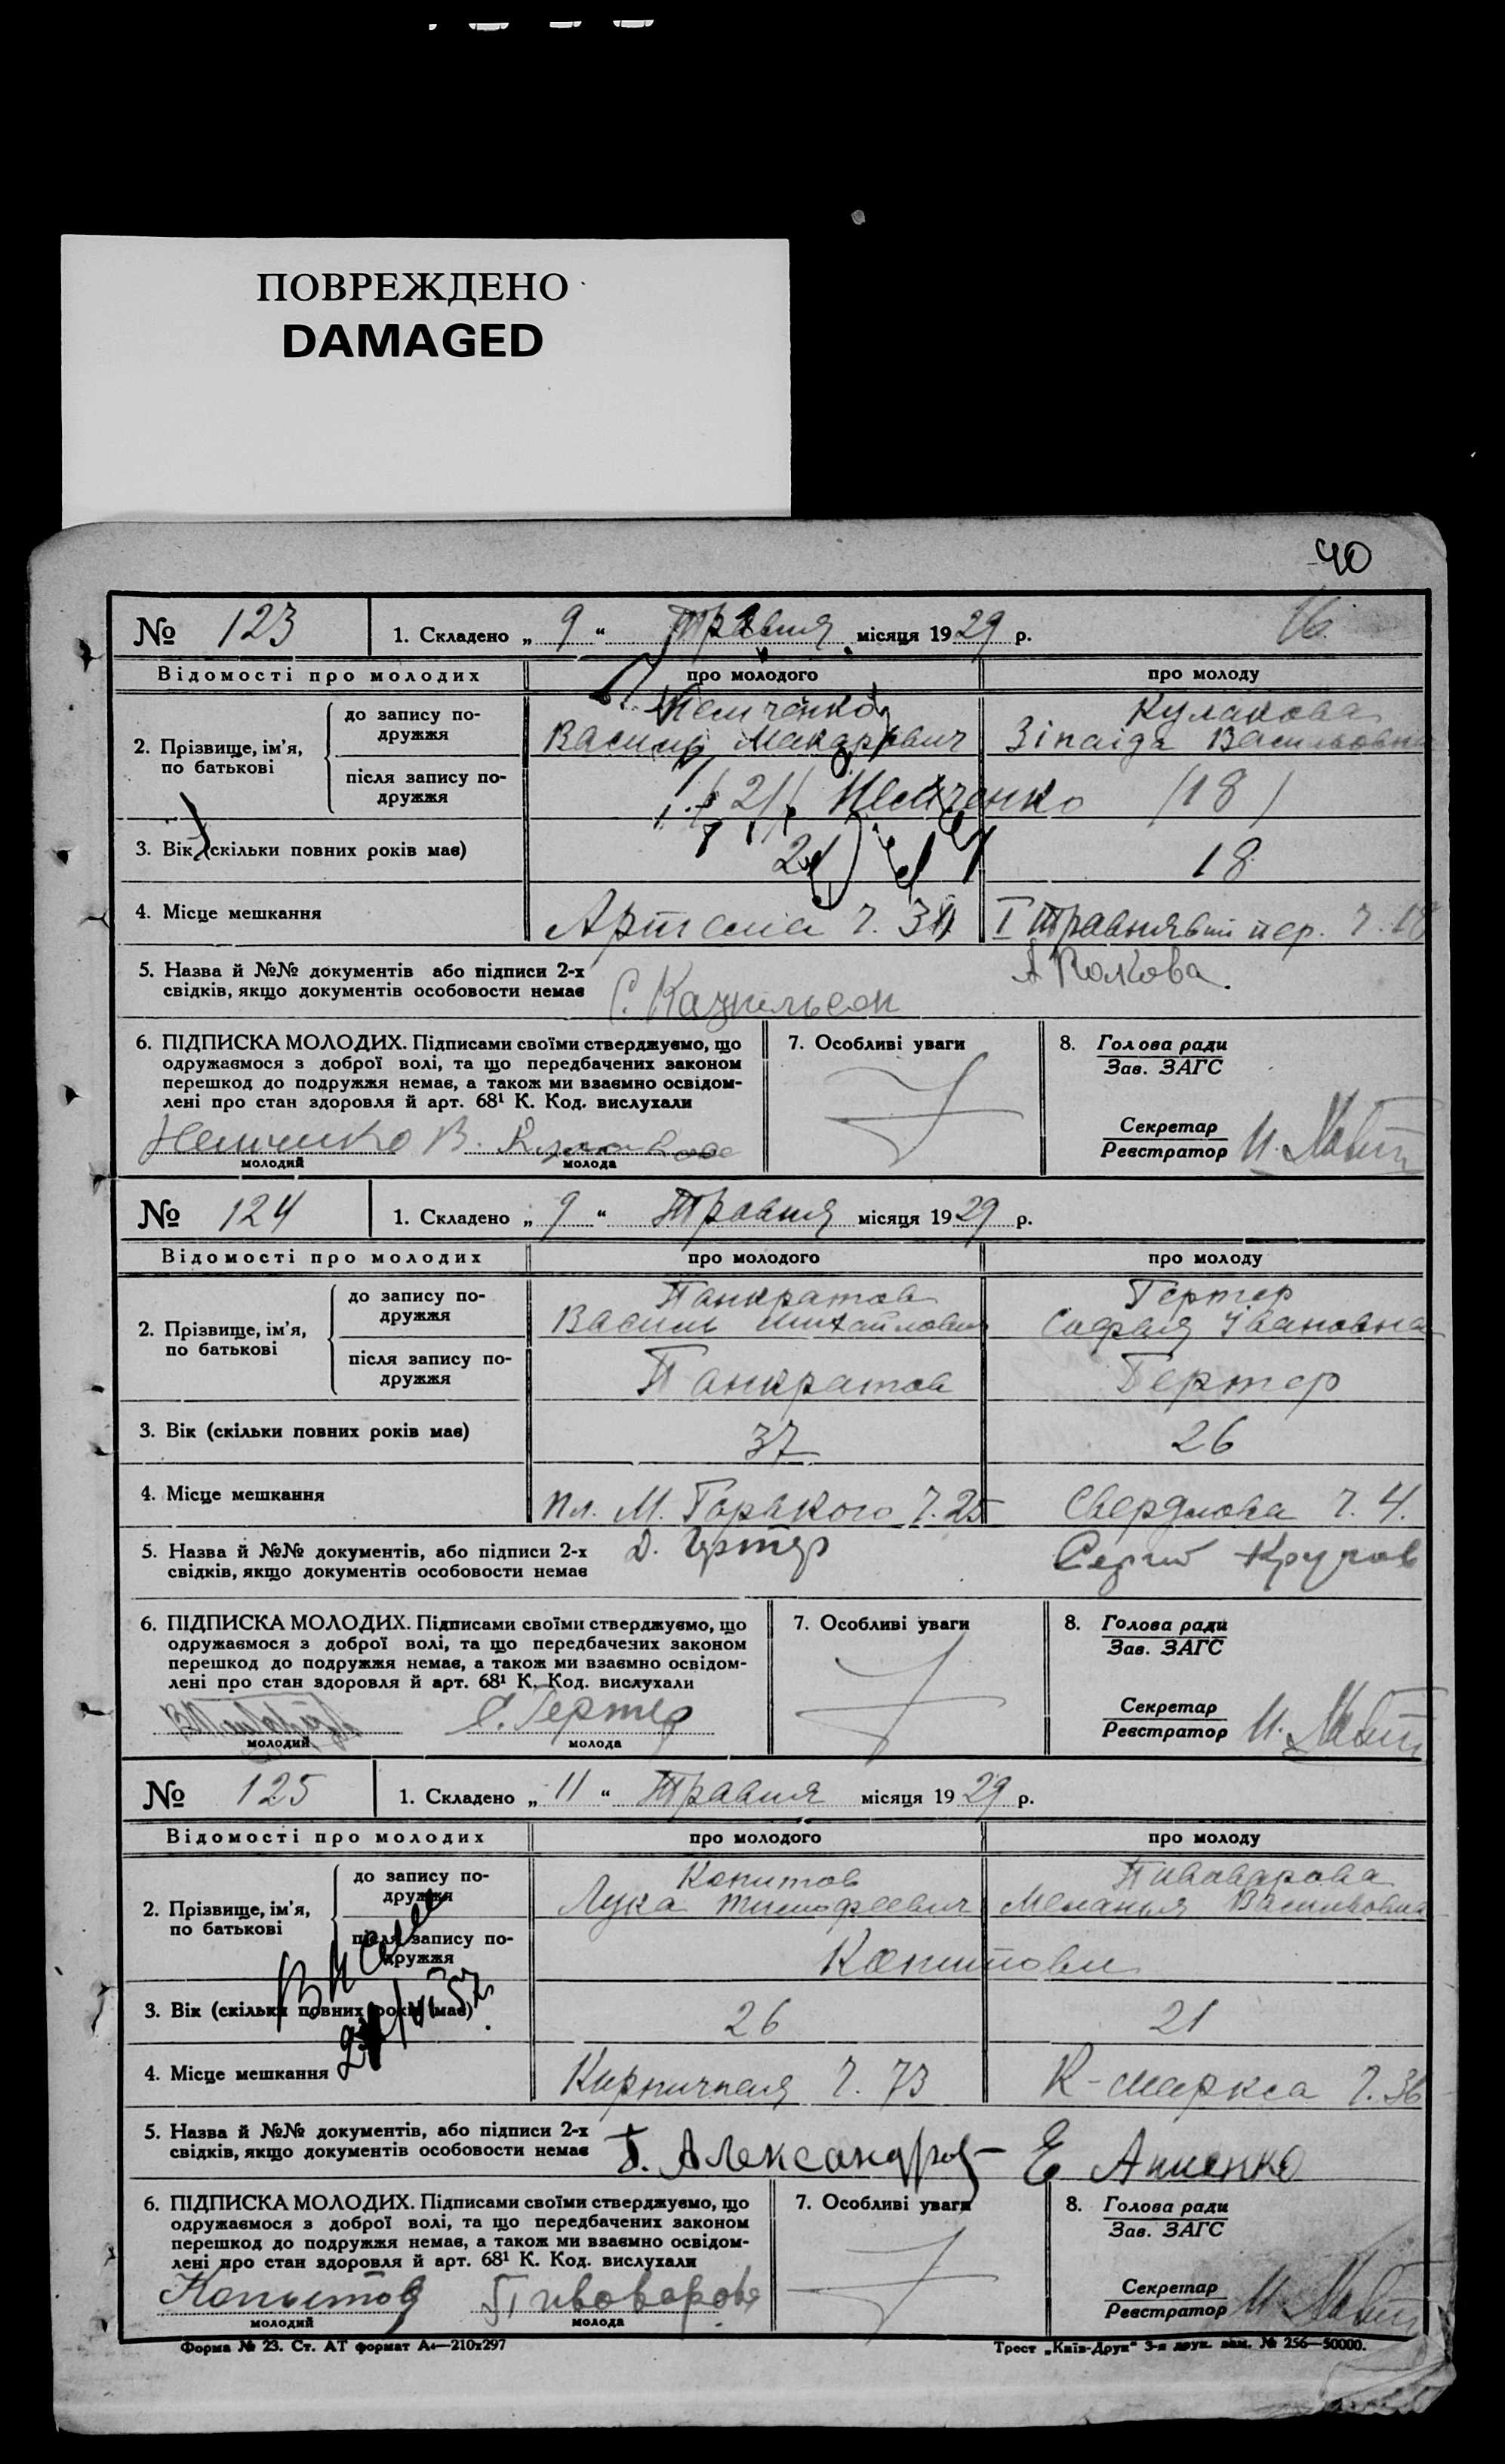 ПОВРЕЖДЕНО
DAMAGED
40
16
№ 123 1. Складено „ 9 “ Травня місяця 1929 р.
Відомості про молодих про молодого про молоду
2. Прізвище, ім’я, по батькові
до запису подружжя
Немченко Кулакова
Василь Макарович Зінаїда Васильовна
після запису подружжя
/21/ Немченко /18/
3. Вік (скільки повних років має) 21 18
4. Місце мешкання Артема ч. І Травнявий пер. ч. 18
5. Назва й №№ документів або підписи 2-х
свідків, якщо документів особовости немає
6. ПІДПИСКА МОЛОДИХ. Підписами своїми стверджуємо, що
одружаємося з доброї волі, та що передбачених законом
перешкод до подружжя немає, а також ми взаємно освідом-
лені про стан здоров'я й арт. 68¹ К. Код. вислухали
Немченко В. Кулакова
молодий молода
7. Особливі уваги
8. Голова ради
Зав. ЗАГС
Секретар
Реєстратор
№ 124 1. Складено „ 9 “ Травня місяця 1929 р.
Відомості про молодих про молодого про молоду
2. Прізвище, ім’я, по батькові
до запису подружжя
Панкратов Гертер
Василь Михайлович Софія Івановна
після запису подружжя
Панкратов Гертер
3. Вік (скільки повних років має) 37 26
4. Місце мешкання Пл. М. Горького ч. 25 Свердлова ч. 4.
5. Назва й №№ документів, або підписи 2-х
свідків, якщо документів особовости немає
Д. Гертер
6. ПІДПИСКА МОЛОДИХ. Підписами своїми стверджуємо, що
одружаємося з доброї волі, та що передбачених законом
перешкод до подружжя немає, а також ми взаємно освідом-
лені про стан здоровля й арт. 68¹ К. Код. вислухали
С. Гертер
молодий молода
7. Особливі уваги
8. Голова ради
Зав. ЗАГС
Секретар
Реєстратор
№ 125 1. Складено „ 11 “ Травня місяця 1929 р.
Відомості про молодих про молодого про молоду
2. Прізвище, ім’я, по батькові
до запису подружжя
Копитов Пивоварова
Лука Тимофеевич Меланья Васильовна
після запису подружжя
Копитови
3. Вік (скільки повних років має) 26 21
4. Місце мешкання Кирпичная ч. 73 К-Маркса ч. 36
5. Назва й №№ документів, або підписи 2-х
свідків, якщо документів особовости немає
Александров Е
6. ПІДПИСКА МОЛОДИХ. Підписами своїми стверджуємо, що
одружаємося з доброї волі, та що передбачених законом
перешкод до подружжя немає, а також ми взаємно освідом-
лені про стан здоровля й арт. 68¹ К. Код. вислухали
Копытов Пивоварова
молодий молода
7. Особливі уваги
8. Голова ради
Зав. ЗАГС
Секретар
Реєстратор
Форма № 23. Ст. АТ формат А₄—210х297
Трест „Київ-Друк“ 3-я друк. зам. № 256—50000.